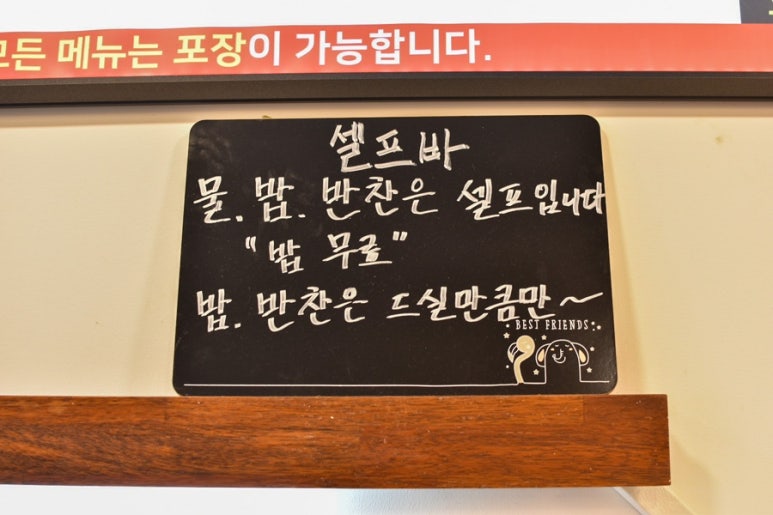 모든 메뉴는 포장이 가능합니다.
셀프바
물. 밥. 반찬은 셀프입니다
"밥 무료"
밥. 반찬은 드실만큼만~
BEST FRIENDS